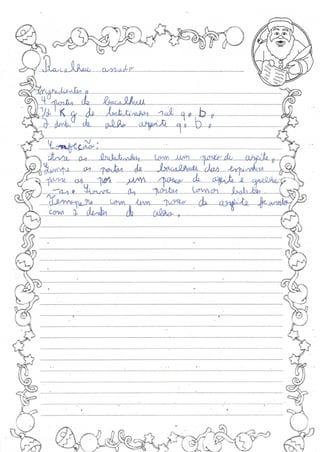 Bacalhau assado
Ingredientes.
4 postas de bacalhau
K g de batatinhas sal q. b.
2 dentes de alho azeite q. b.
Confecção:
as batatinhas com um pouco de azeite.
Limpe as postas de bacalhau das espinhas
um pouco de azeite e grelhe
as postas com as batatas
Tempere com um pouco de azeite
com 2 dentes de alho.